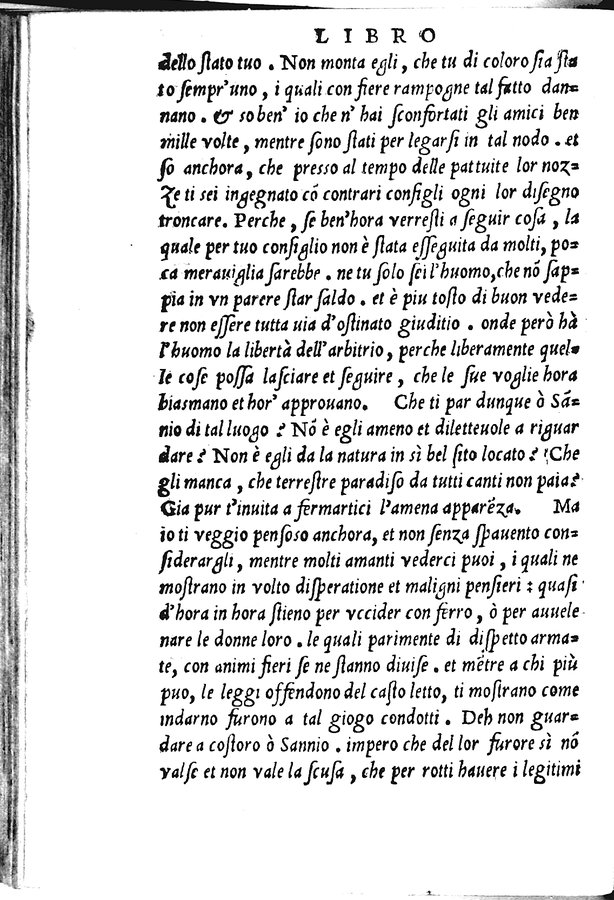 LIBRO
dello ſtato tuo . Non monta egli, che tu di coloro ſia ſta
to ſempr'uno , i quali con fiere rampogne tal fatto dan=
nano . & ſo ben' io che n' hai ſconfortati gli amici ben
mille volte, mentre ſono ſtati per legarſi in tal nodo . et
ſo anchora, che preſſo al tempo delle pattuite lor noz=
Ze ti sei ingegnato cõ contrari conſigli ogni lor diſegno
troncare. Perche , ſe ben'hora verreſti a ſeguir coſa , la
quale per tuo conſiglio non è ſtata eſſeguita da molti, po=
ca merauiglia ſarebbe . ne tu ſolo ſei l'huomo, che nõ ſap=
pia in vn parere ſtar ſaldo . et è piu toſto di buon vede=
re non eſſere tutta uia d'oſtinato giuditio . onde però hà
l'huomo la libertà dell'arbitrio, perche liberamente quel=
le coſe poſſa laſciare et ſeguire , che le ſue voglie hora
biasmano et hor' approuano. Che ti par dunque ò Sã=
nio di tal luogo ? Nõ è egli ameno et diletteuole a riguar
dare ? Non è egli da la natura in sì bel ſito locato ? Che
gli manca , che terreſtre paradiſo da tutti canti non paia?
Gia pur t'inuita a fermartici l'amena apparẽza. Ma
io ti veggio penſoso anchora, et non ſenza ſpauento con=
ſiderargli , mentre molti amanti vederci puoi , i quali ne
moſtrano in volto diſperatione et maligni penſieri : quaſi
d'hora in hora ſtieno per vccider con ferro , ò per auuele
nare le donne loro . le quali parimente di diſpetto arma=
te, con animi fieri ſe ne ſtanno diuiſe . et mẽtre a chi più
puo, le leggi offendono del caſto letto, ti moſtrano come
indarno furono a tal giogo condotti . Deh non guar=
dare a coſtoro ò Sannio . impero che del lor furore sì nõ
valſe et non vale la ſcuſa , che per rotti hauere i legitimi